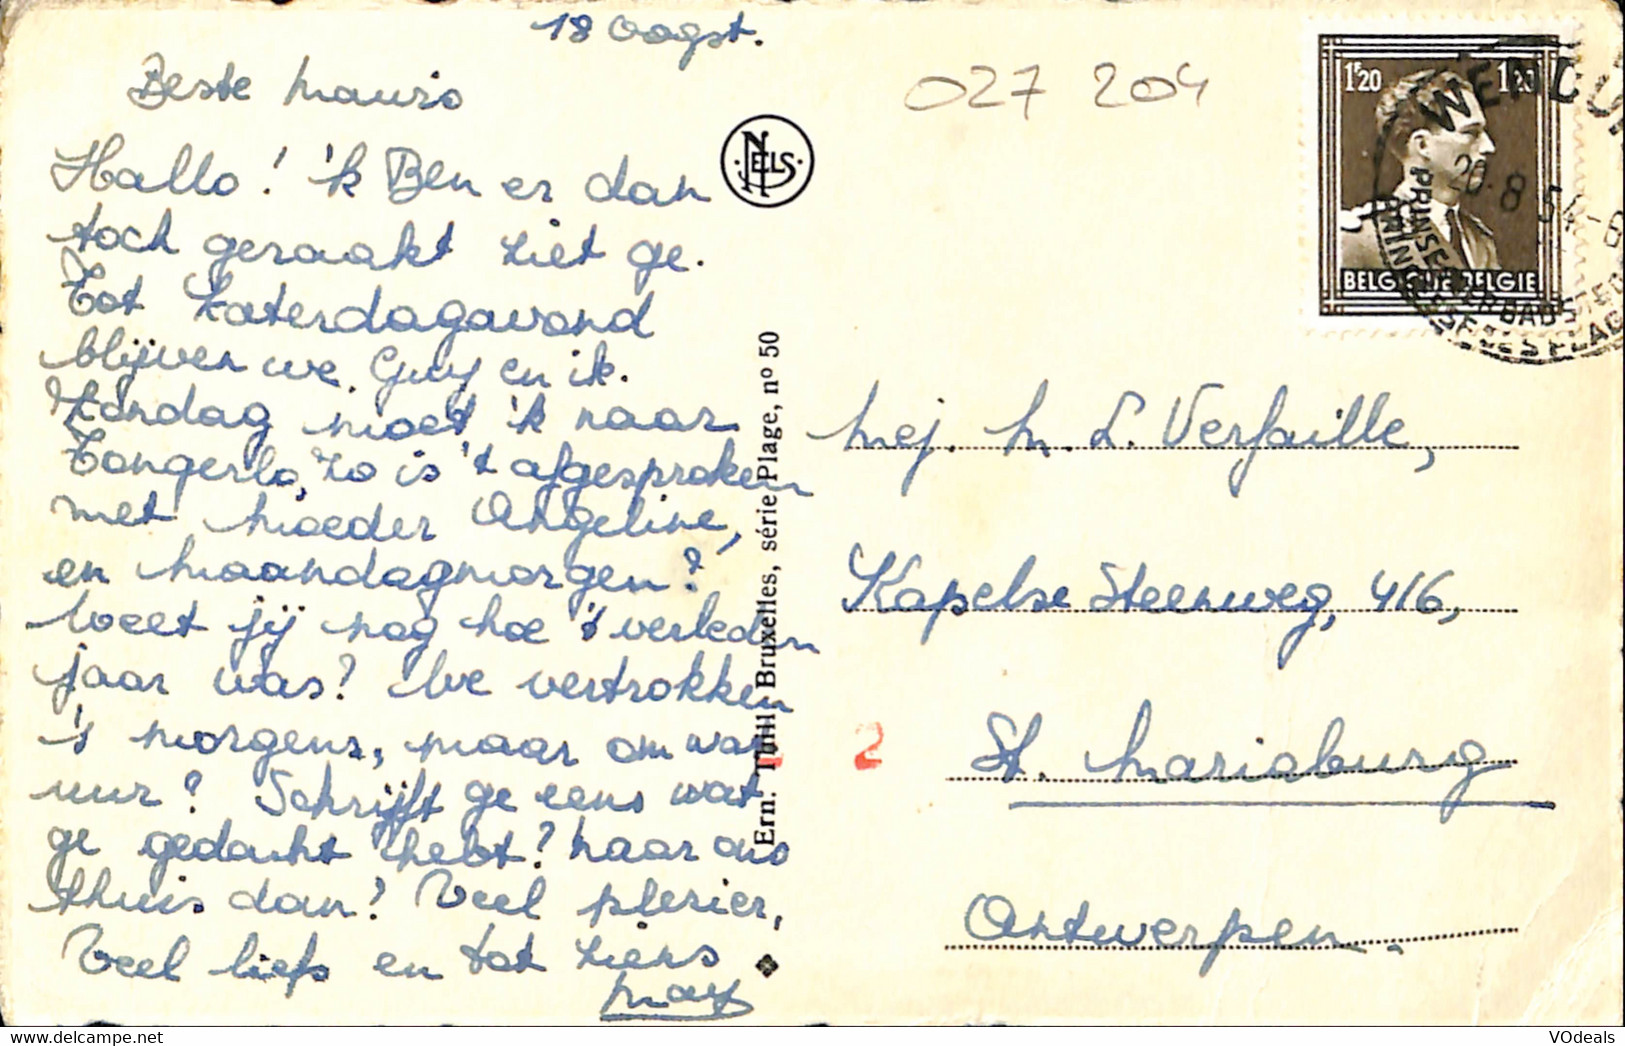 18 Oogst.
Beste Mauro
Hallo! 'k Ben er dan
toch geraakt ziet ge.
Tot Zaterdagavond
blijven we, Guy en ik.
Zondag moet 'k naar
Tongerlo, zo is 't afgesproken
met moeder Angeline,
en maandagmorgen?
Weet jij nog hoe 't verleden
jaar was? We vertrokken
's morgens, maar om wat
uur? Schrijft ge eens wat
ge gedacht hebt? Naar ons
thuis dan? Veel plezier,
Veel liefs en tot ziens
May
NELS
Ern. Thill Bruxelles, série Plage, nº 50
027 204
1F20 1F20
BELGIQUE BELGIE
20-8
PRINSES DER BADSTEDEN
Mej. M. L. Verfaille,
Kapelse Steenweg, 416,
2
St. Mariaburg
Antwerpen.
VOdeals